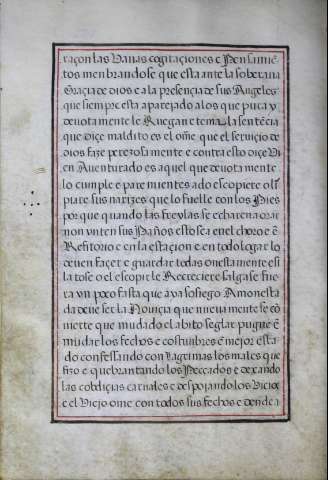 raçon las vanas cogitaçiones e Pensamiē
tos menbrandose que esta ante la soberana
Graçia de dios e a la presençia de sus Angeles
que siempre esta aparejado a los que pura y
devotamente le Ruegan e tema la sentēçia
que diçe maldito es el oм̃e que el serviçio de
dios faze perezosamente e contra esto diçe vi
en Aventurado es aquel que devotamente
lo cumple e paremientes ado escopiere o li
piare sus narizes que lo fuelle con los Pies
por que quando las freylas se echaren a orar
non unten sus Paños esto sea en el choro e ē
Refitorio e en la estaçion e en todo logar lo
deven façer e guardar todas onestamente si
la tose o el escopir le Recreçiere salga se fue
ra un poco fasta que aya sosiego Amonesta
da deve ser la Noviçia que nuevamente se co
mierte que mudado el abito seglar pugne ē
mudar los fechos e costunbres ē mejor esta
do confessando con lagrimas los males que
fizo e quebrantando los Peccados e dexando
las cobdiçias carnales e despojando los viçios
e el viejo ome con todos sus fechos e dende a